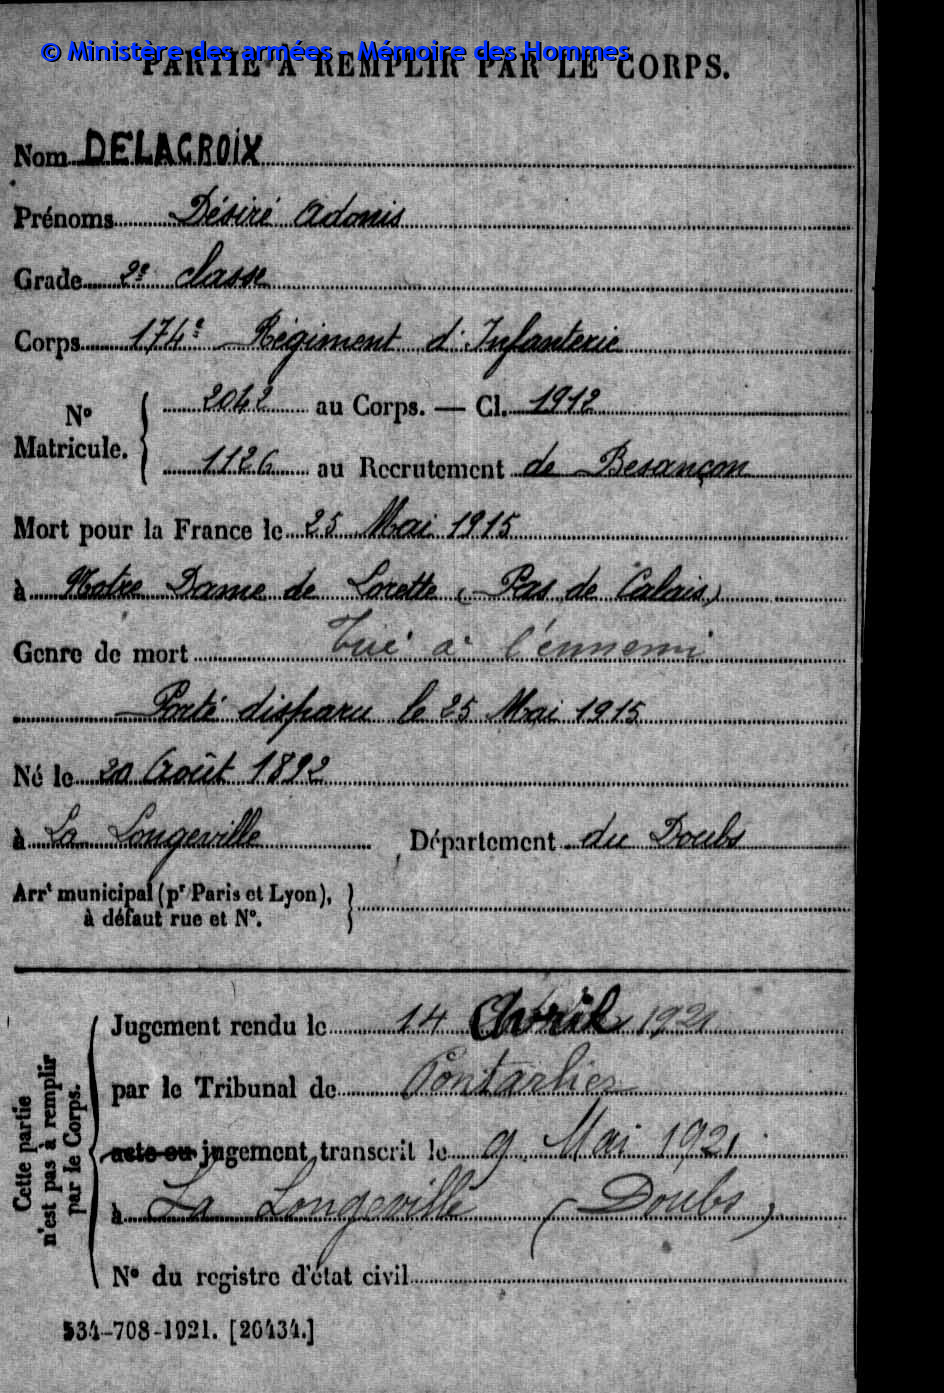 © Ministère des armées - Mémoire des Hommes
PARTIE À REMPLIR PAR LE CORPS.
Nom DELACROIX
Prénoms Désiré Adonis
Grade 2e classe
Corps 174e Régiment d'Infanterie
No Matricule. { 2042 au Corps. — Cl. 1912
1126 au Recrutement de Besançon
Mort pour la France le 25 Mai 1915
à Notre Dame de Lorette (Pas de Calais)
Genre de mort Tué à l'ennemi
Porté disparu le 25 Mai 1915
Né le 20 Août 1892
à La Longeville Département du Doubs
Arrt municipal (pr Paris et Lyon), }
à défaut rue et No.
Cette partie
n'est pas à remplir
par le Corps.
Jugement rendu le 14 Avril 1921
par le Tribunal de Pontarlier
acte ou jugement transcrit le 9 Mai 1921
à La Longeville (Doubs)
No du registre d'état civil
534-708-1921. [26434.]